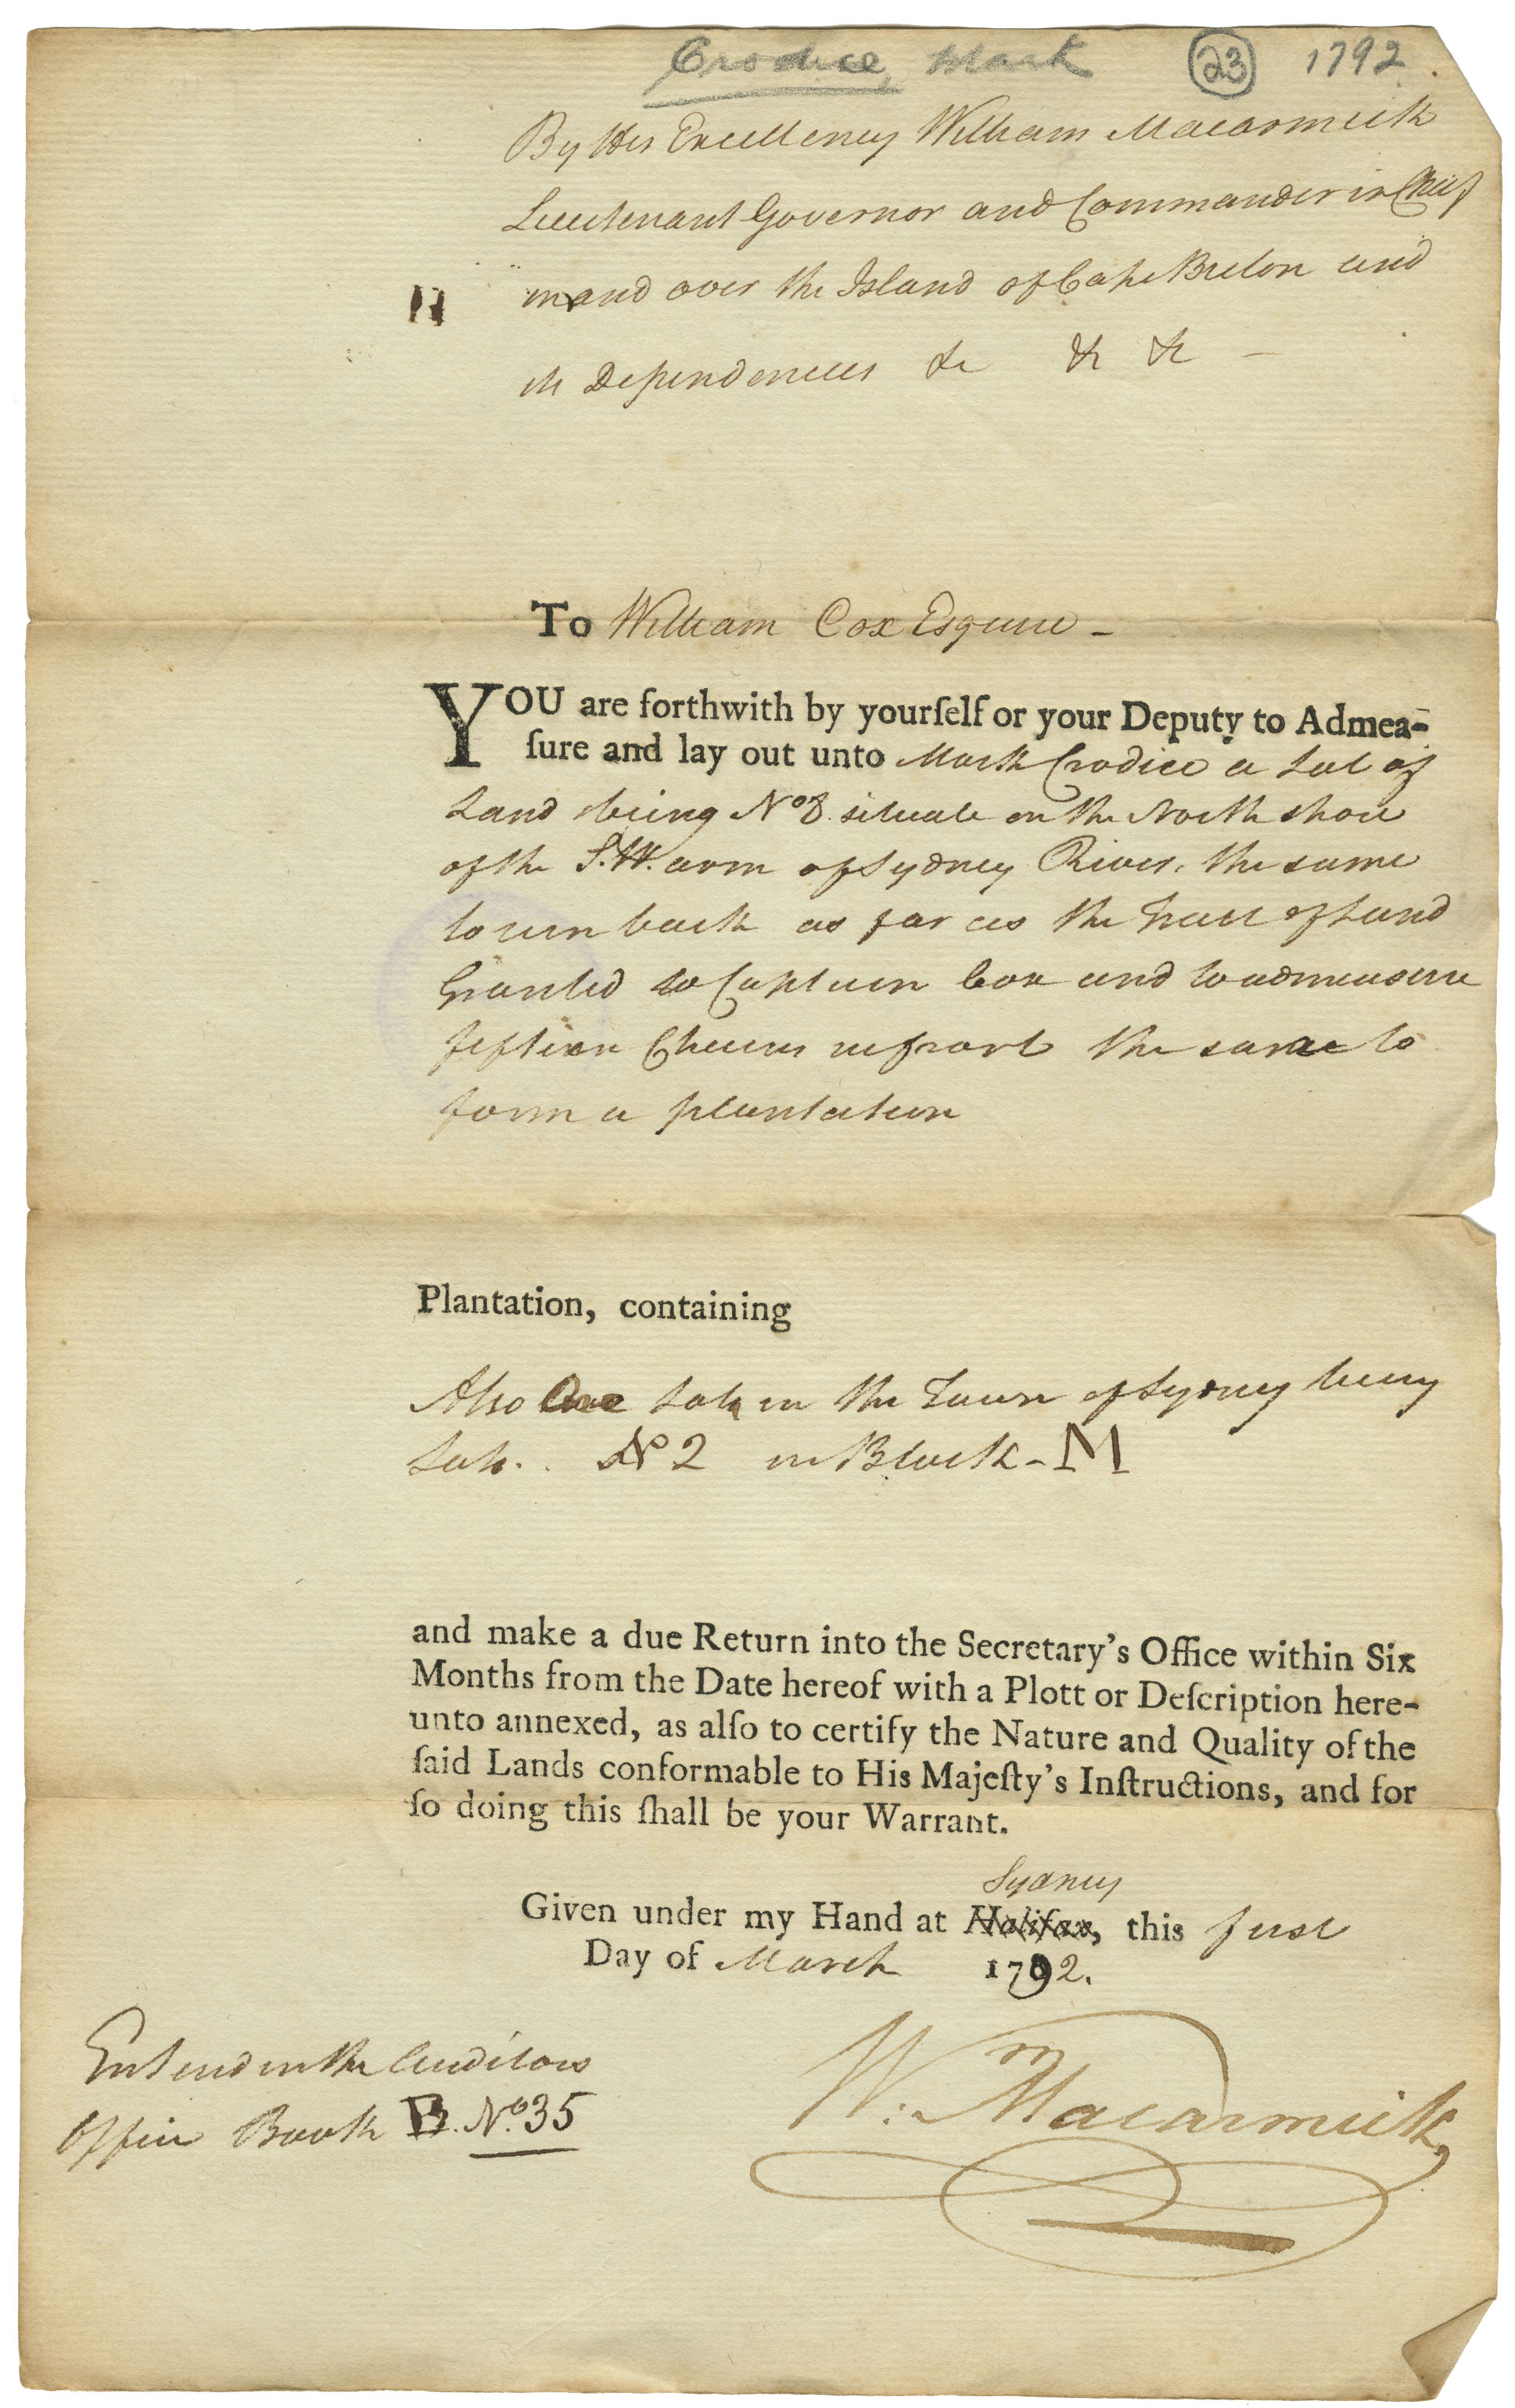 Crodice, Mark (23) 1792
By His Excellency William Macarmick
Lieutenant Governor and Commander in Chief
in and over the Island of Cape Breton and
its Dependencies &c &c &c —
To William Cox Esquire -
YOU are forthwith by yourſelf or your Deputy to Admea-
ſure and lay out unto Mark Crodice a Lot of
Land being No 8. situate on the North shore
of the S.W. arm of Sydney River, the same
to run back as far as the Tract of Land
Granted to Captain Cox and to admeasure
fifteen Chains in front the same to
form a plantation
Plantation, containing
Also One Lot in the Town of Sydney being
Lot.. No 2 in Block - M
and make a due Return into the Secretary's Office within Six
Months from the Date hereof with a Plott or Deſcription here-
unto annexed, as alſo to certify the Nature and Quality of the
ſaid Lands conformable to His Majeſty's Inſtructions, and for
ſo doing this ſhall be your Warrant.
Sydney
Given under my Hand at Halifax, this first
Day of March 1792.
Enterd in the Auditors
Office Book B. No. 35
Wm. Macarmick